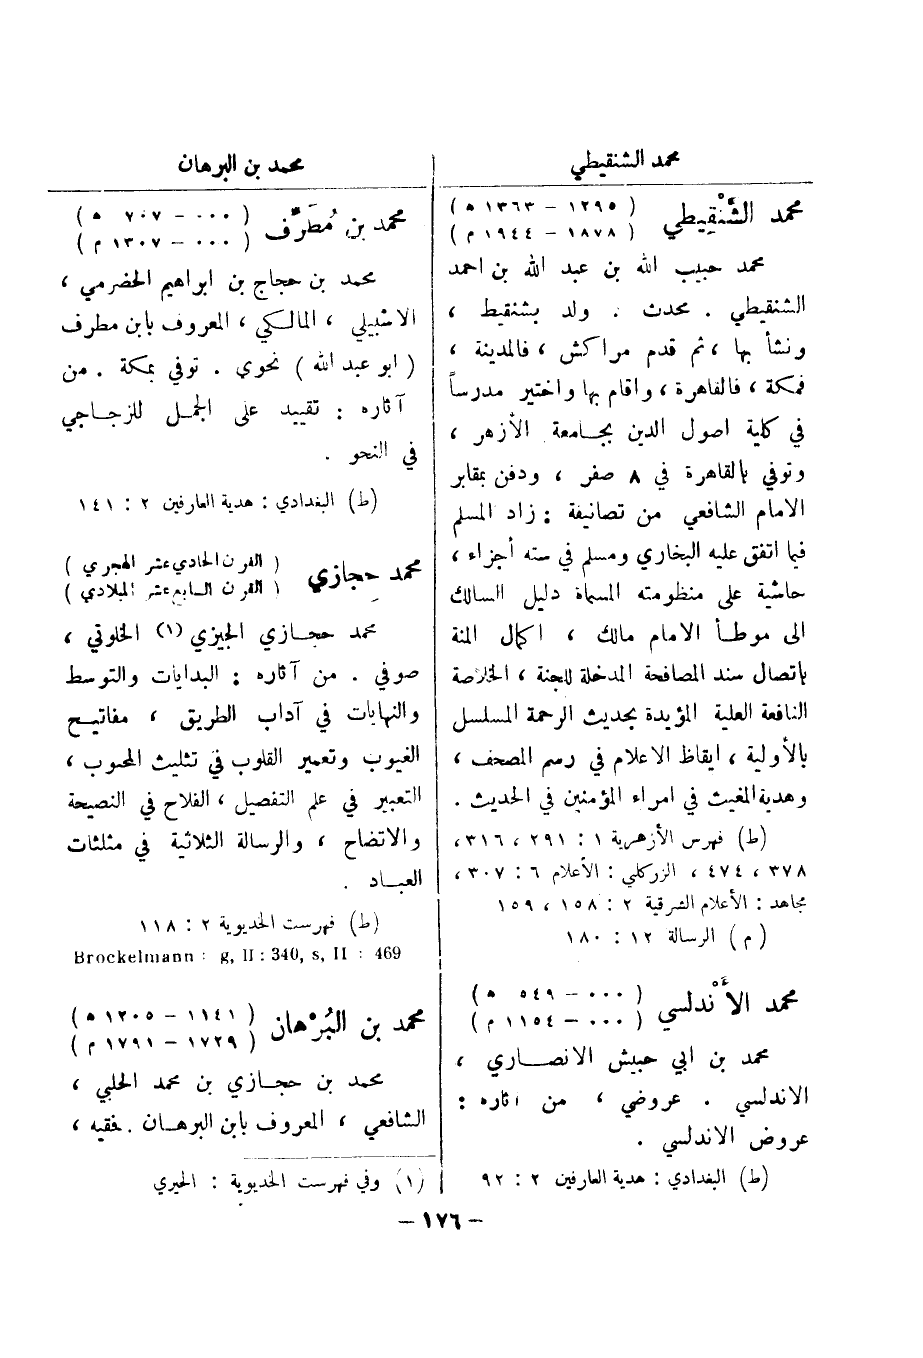 محمد الشنقيطي
محمد الشَّنْقِيطي ( ١٢٩٥ – ١٣٦٣ هـ )
( ١٨٧٨ – ١٩٤٤ م )
محمد حبيب الله بن عبد الله بن احمد
الشنقيطي . محدث . ولد بشنقيط ،
ونشأ بها ، ثم قدم مراكش ، فالمدينة ،
فمكة ، فالقاهرة ، واقام بها واختير مدرساً
في كلية اصول الدين بجامعة الأزهر ،
وتوفي بالقاهرة في ٨ صفر ، ودفن بمقابر
الامام الشافعي من تصانيفة : زاد المسلم
فيما اتفق عليه البخاري ومسلم في سته أجزاء ،
حاشية على منظومته المسماة دليل السالك
الى موطأ الامام مالك ، اكمال المنة
باتصال سند المصافحة المدخلة للجنة ، الخلاصة
النافعة العلية المؤيدة بحديث الرحمة المسلسل
بالأولية ، ايقاظ الاعلام في رسم المصحف ،
وهدية المغيث في امراء المؤمنين في الحديث .
(ط) فهرس الأزهرية ١ : ٢٩١ ، ٣١٦ ،
٣٧٨ ، ٤٧٤ ، الزركلي : الأعلام ٦ : ٣٠٧ ،
مجاهد : الأعلام الشرقية ٢ : ١٥٨ ، ١٥٩
( م ) الرسالة ١٢ : ١٨٠
محمد الأَنْدلسي ( ٠٠٠ – ٥٤٩ هـ )
( ٠٠٠ – ١١٥٤ م )
محمد بن ابي حبيش الانصاري ،
الاندلسي . عروضي ، من اثاره :
عروض الاندلسي .
(ط) البغدادي : هدية العارفين ٢ : ٩٢
محمد بن البرهان
محمد بن مُطَرِّف ( ٠٠٠ – ٧٠٧ هـ )
( ٠٠٠ – ١٣٠٧ م )
محمد بن حجاج بن ابراهيم الحضرمي ،
الاشبيلي ، المالكي ، المعروف بابن مطرف
( ابو عبد الله ) نحوي . توفي بمكة . من
آثاره : تقييد على الجمل للزجاجي
في النحو .
(ط) البغدادي : هدية العارفين ٢ : ١٤١
محمد حجازي ( القرن الحادي عشر الهجري )
( القرن السابع عشر الميلادي )
محمد حجازي الجيزي (١) الخلوتي ،
صوفي . من آثاره : البدايات والتوسط
والنهايات في آداب الطريق ، مفاتيح
الغيوب وتعمير القلوب في تثليث المحبوب ،
التعبير في علم التفصيل ، الفلاح في النصيحة
والاتضاح ، والرسالة الثلاثية في مثلثات
العباد .
(ط) فهرست الخديوية ٢ : ١١٨
Brockelmann : g, II : 340, s, II : 469
محمد بن البُرْهان ( ١١٤١ – ١٢٠٥ هـ )
( ١٧٢٩ – ١٧٩١ م )
محمد بن حجازي بن محمد الحلبي ،
الشافعي ، المعروف بابن البرهان . فقيه ،
(١) وفي فهرست الخديوية : الحيري
– ١٧٦ –